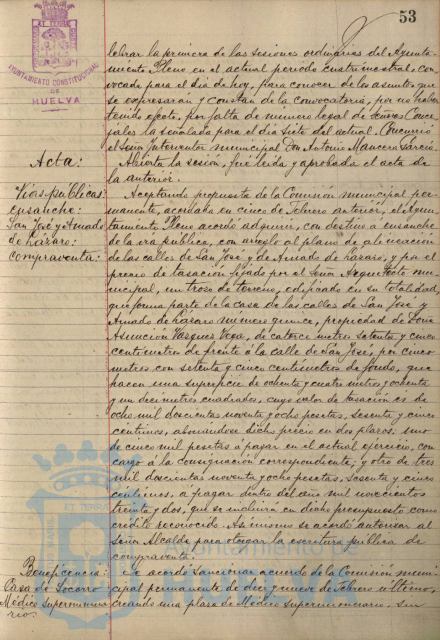 53
AYUNTAMIENTO CONSTITUCIONAL
DE
HUELVA
lebrar la primera de las sesiones ordinarias del Ayunta-
miento Pleno en el actual periodo cuatrimestral, con-
vocada para el dia de hoy, para conocer de los asuntos que
se expresaran y constan de la convocatoria, por no haber
tenido efecto, por falta de numero legal de señores Conce-
jales la señalada para el dia siete del actual. Concurrió
el Señor Interventor municipal Don Antonio Mancera García.
Acta:
Abierta la sesión, fué leida y aprobada el acta de
la anterior.
Vias publicas:
ensanche:
San José y Amado
de Lázaro:
Compraventa:
Aceptando propuesta de la Comisión municipal per-
manente, acordada en cinco de Febrero anterior, el Ayun-
tamiento Pleno acordó adquirir, con destino a ensanche
de la via publica, con arreglo al plano de alineación
de las calles de San José y de Amado de Lázaro, y por el
precio de tasación fijado por el Señor Arquitecto mu-
nicipal, un trozo de terreno, edificado en su totalidad,
que forma parte de la casa de las calles de San José y
Amado de Lázaro número quince, propiedad de Doña
Asunción Vázquez Vega, de catorce metros setenta y cinco
centimetros de frente a la calle de San José, por cinco
metros con setenta y cinco centimetros de fondo, que
hacen una superficie de ochenta y cuatro metros y ochenta
y un decimetros cuadrados, cuyo valor de tasación es de
ocho mil doscientas noventa y ocho pesetas, sesenta y cinco
centimos, abonandose dicho precio en dos plazos: uno
de cinco mil pesetas a pagar en el actual ejercicio, con
cargo á la consignación correspondiente; y otro de tres
mil doscientas noventa y ocho pesetas, sesenta y cinco
centimos, a pagar dentro del año mil novecientos
treinta y dos, que se incluira en dicho presupuesto como
credito reconocido. Asimismo se acordó autorizar al
Señor Alcalde para otorgar la escritura publica de
compraventa.
Beneficencia:
Casa de Socorro
Médico Supernumera
rio.
Se acordó sancionar acuerdo de la Comisión muni-
cipal permanente de diez y nueve de Febrero último,
creando una plaza de Médico Supernumerario, sin
Ayuntamiento de